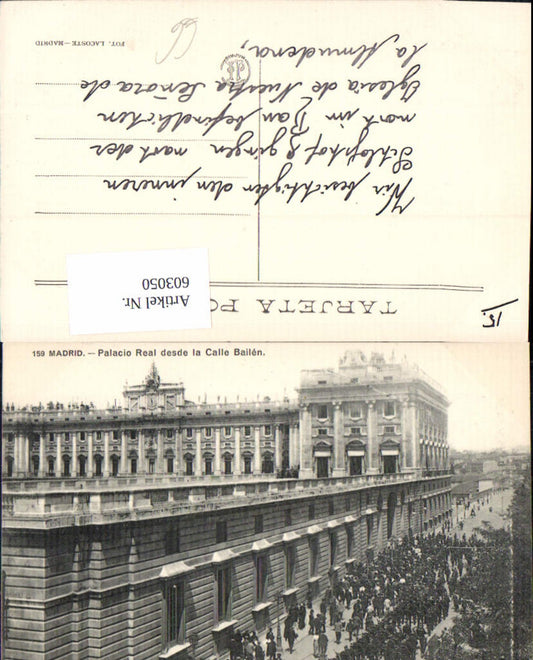 TARJETA PO
15.
Artikel Nr.
603050
Wir besichtigten den inneren
Schlosshof & gingen nach der
noch im Bau befindlichen
Iglesia de Nuestra Señora de
la Almudena,
FOT. LACOSTE—MADRID
159 MADRID. — Palacio Real desde la Calle Bailén.